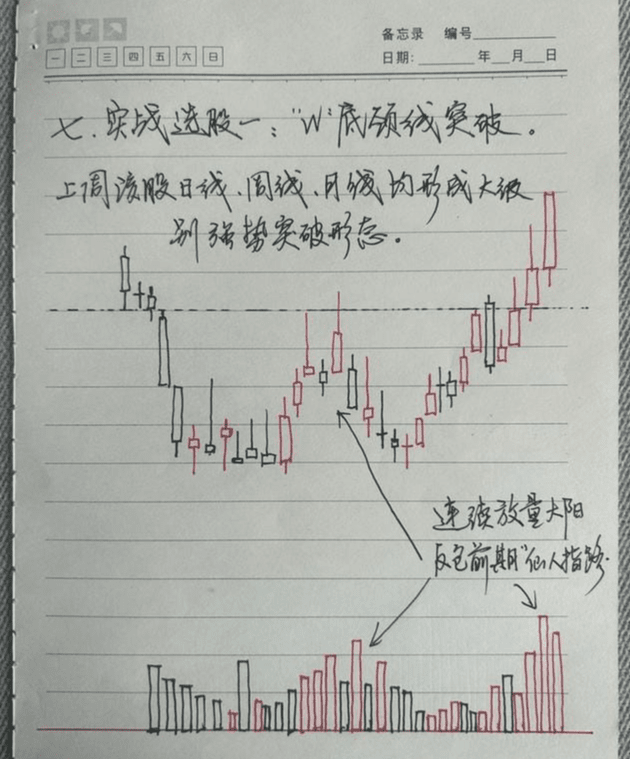 备忘录 编号
一 二 三 四 五 六 日
日期: 年 月 日
七.实战选股一:"W"底颈线突破。
上周该股日线.周线.月线均形成大级
别强势突破形态。
连续放量大阳
反包前期"仙人指路.